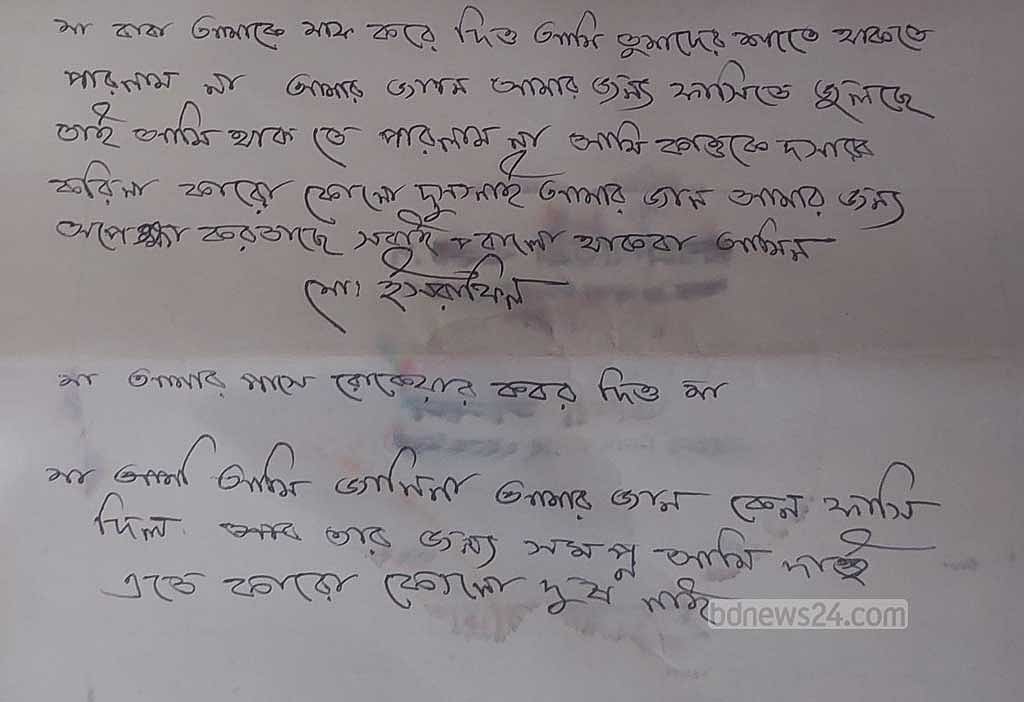 মা বাবা আমাকে মাফ করে দিও আমি তুমাদের সাতে থাকতে
পারলাম না আমার জান আমার জন্য ফাসিতে ঝুলছে
তাই আমি থাক তে পারলাম না আমি কাওকে দায়ের
করিনা কারো কোনো দুস নাই আমার জান আমার জন্য
অপেক্ষা করতাছে সবাই বালো থাকবা আমিন
মো। ইসরাফিল
মা আমার পাসে রোকেয়ার কবর দিও মা
মা আমি জানিনা আমার জান কেন ফাসি
দিল তার জন্য সমপূ আমি দাই
এতে কারো কোনো দুষ নাই
bdnews24.com